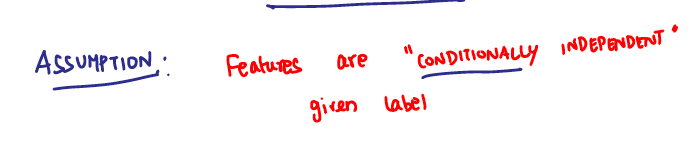 ASSUMPTION: Features are "CONDITIONALLY INDEPENDENT"
given label